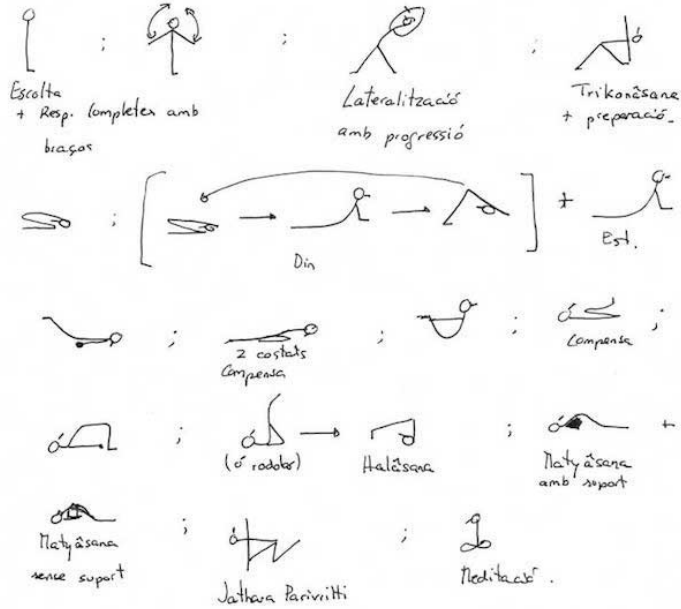 Escolta
+ Resp. Completes amb
braços
Lateralització
amb progressió
Trikonâsana
+ preparació.
Din
+
Est.
2 costats
Compensa
Compensa
(ó rodolar)
Halâsana
Matyâsana
amb suport
+
Matyâsana
sense suport
Jathara Parivritti
Meditació.